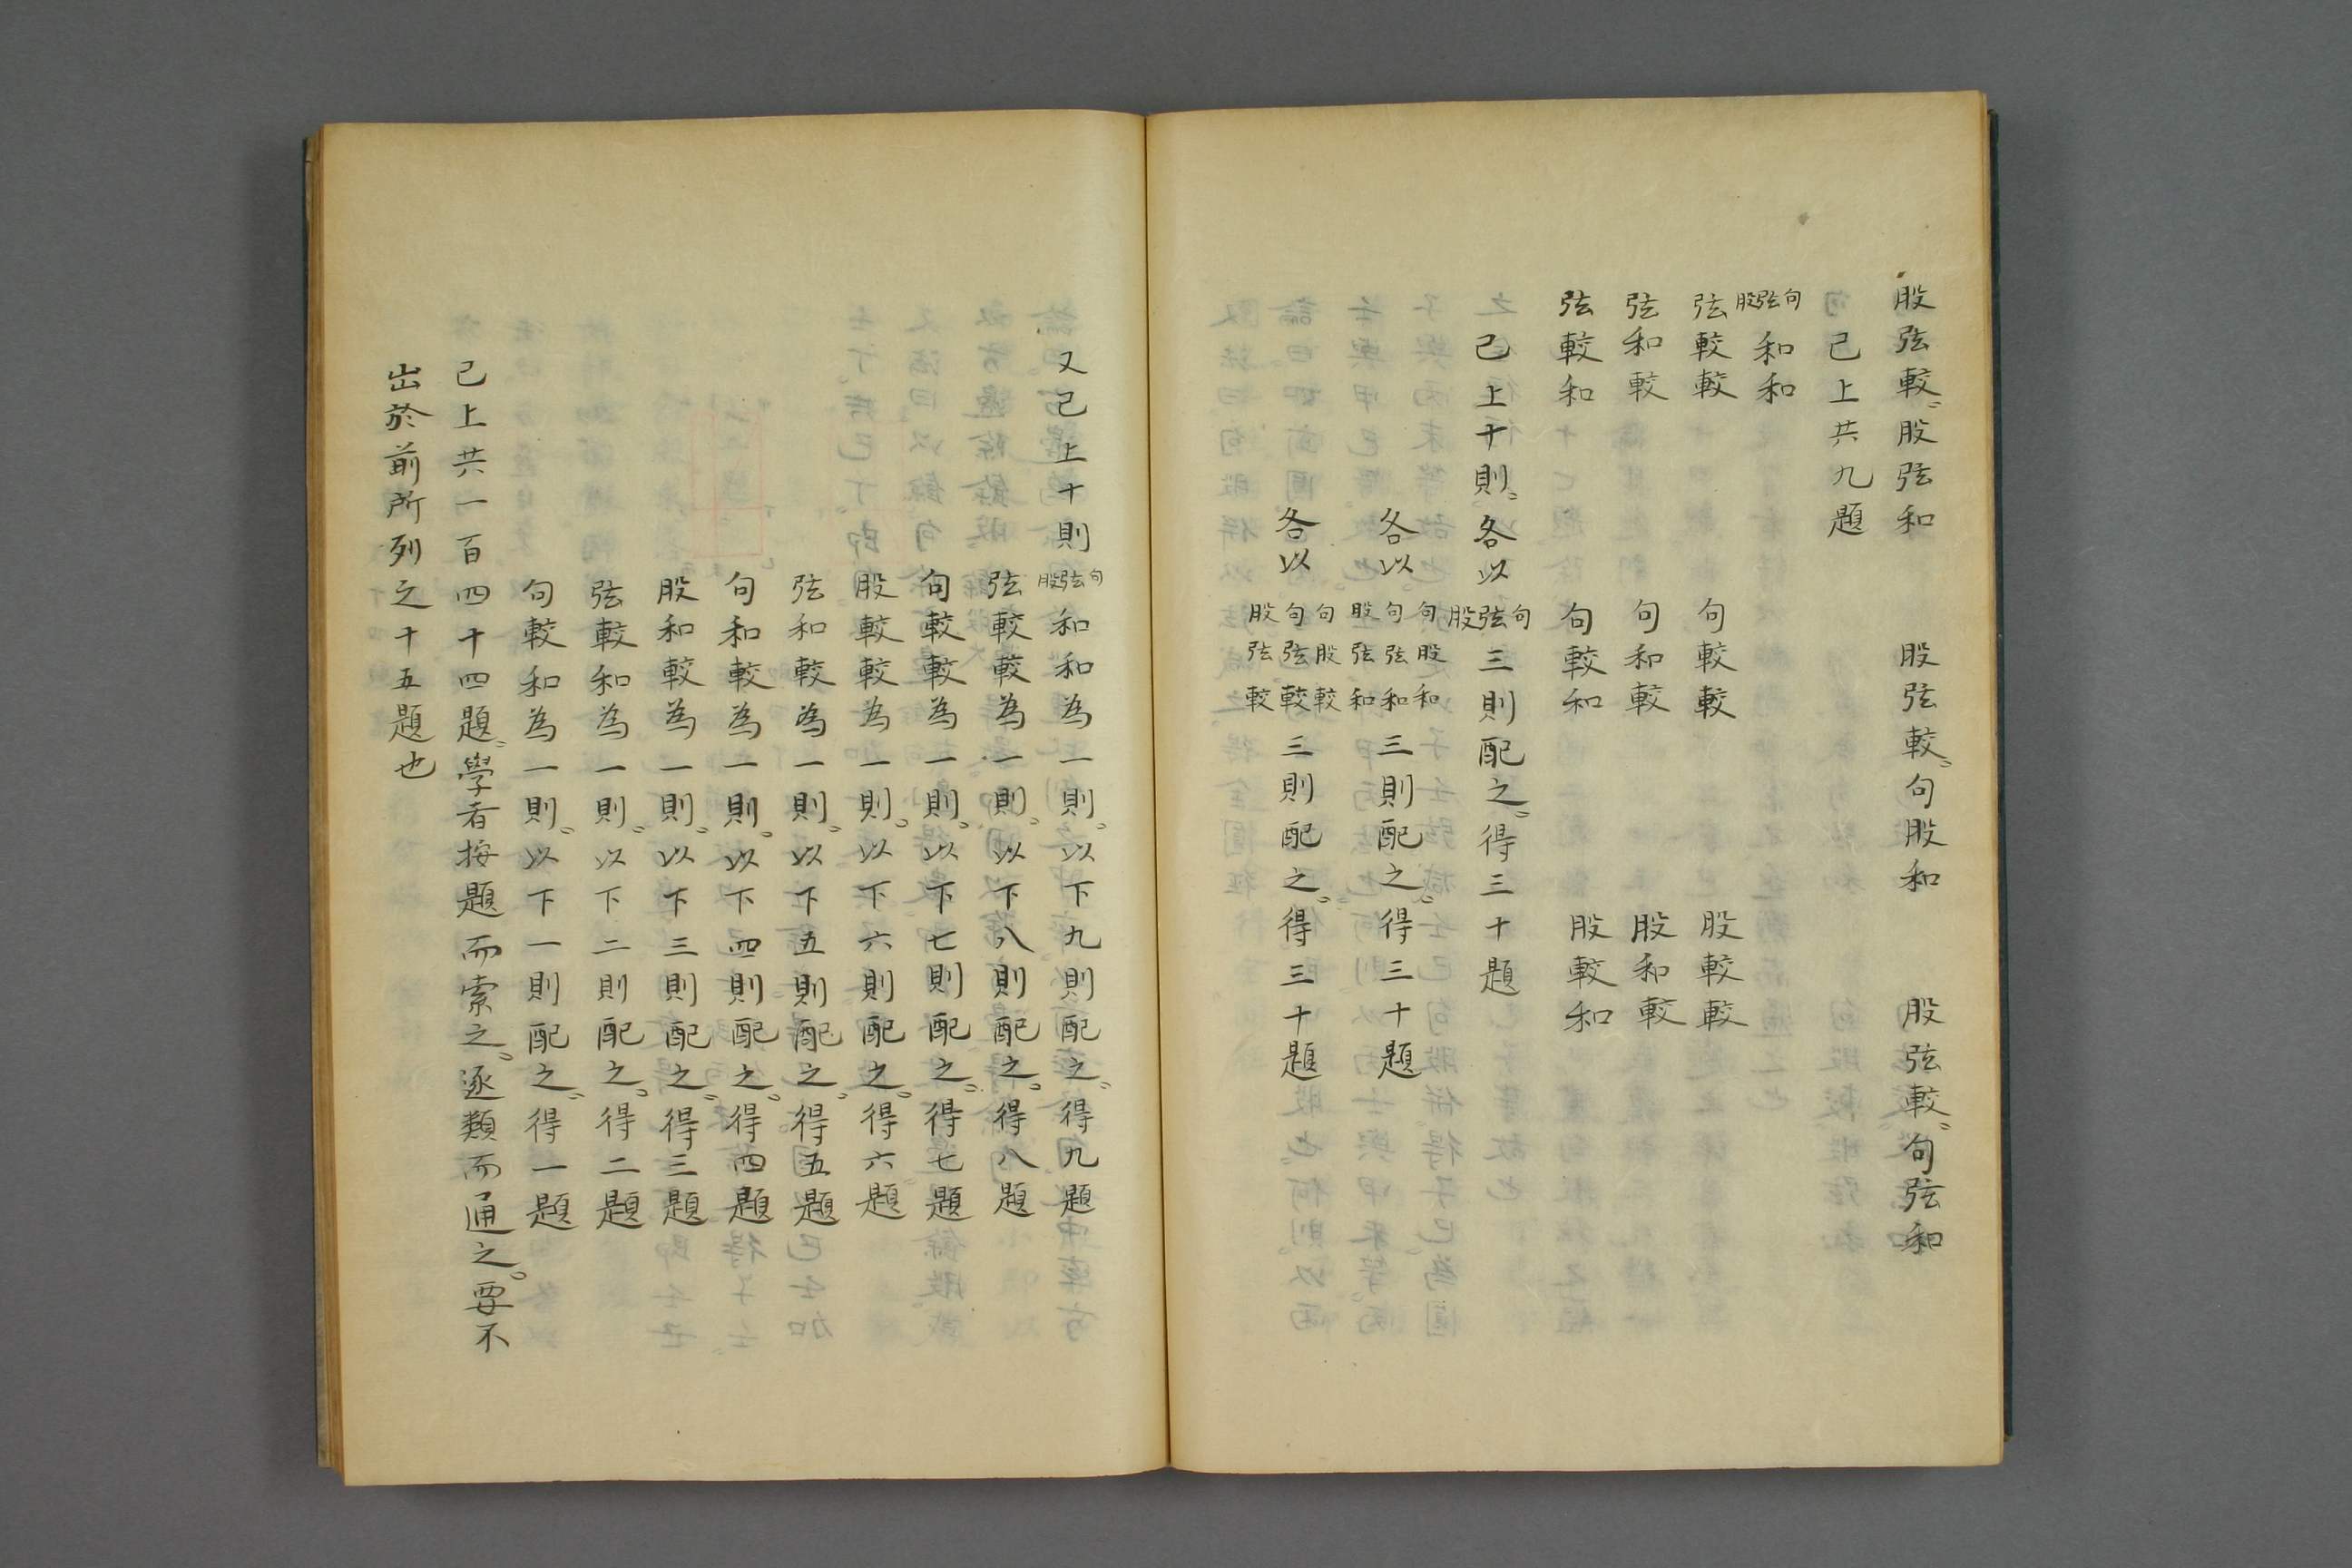 股弦較股弦和　股弦較句股和　股弦較句弦和
已上共九題
句弦股和和
弦較較　句較較　股較較
弦和較　句和較　股和較
弦較和　句較和　股較和
已上十則各以句弦股三則配之得三十題
各以句股和句弦和股弦和三則配之得三十題
各以句股較句弦較股弦較三則配之得三十題
又已上十則句弦股和和為一則以下九則配之得九題
弦較較為一則以下八則配之得八題
句較較為一則以下七則配之得七題
股較較為一則以下六則配之得六題
弦和較為一則以下五則配之得五題
句和較為一則以下四則配之得四題
股和較為一則以下三則配之得三題
弦較和為一則以下二則配之得二題
句較和為一則以下一則配之得一題
已上共一百四十四題學者按題而索之逐類而通之要不
出於前所列之十五題也